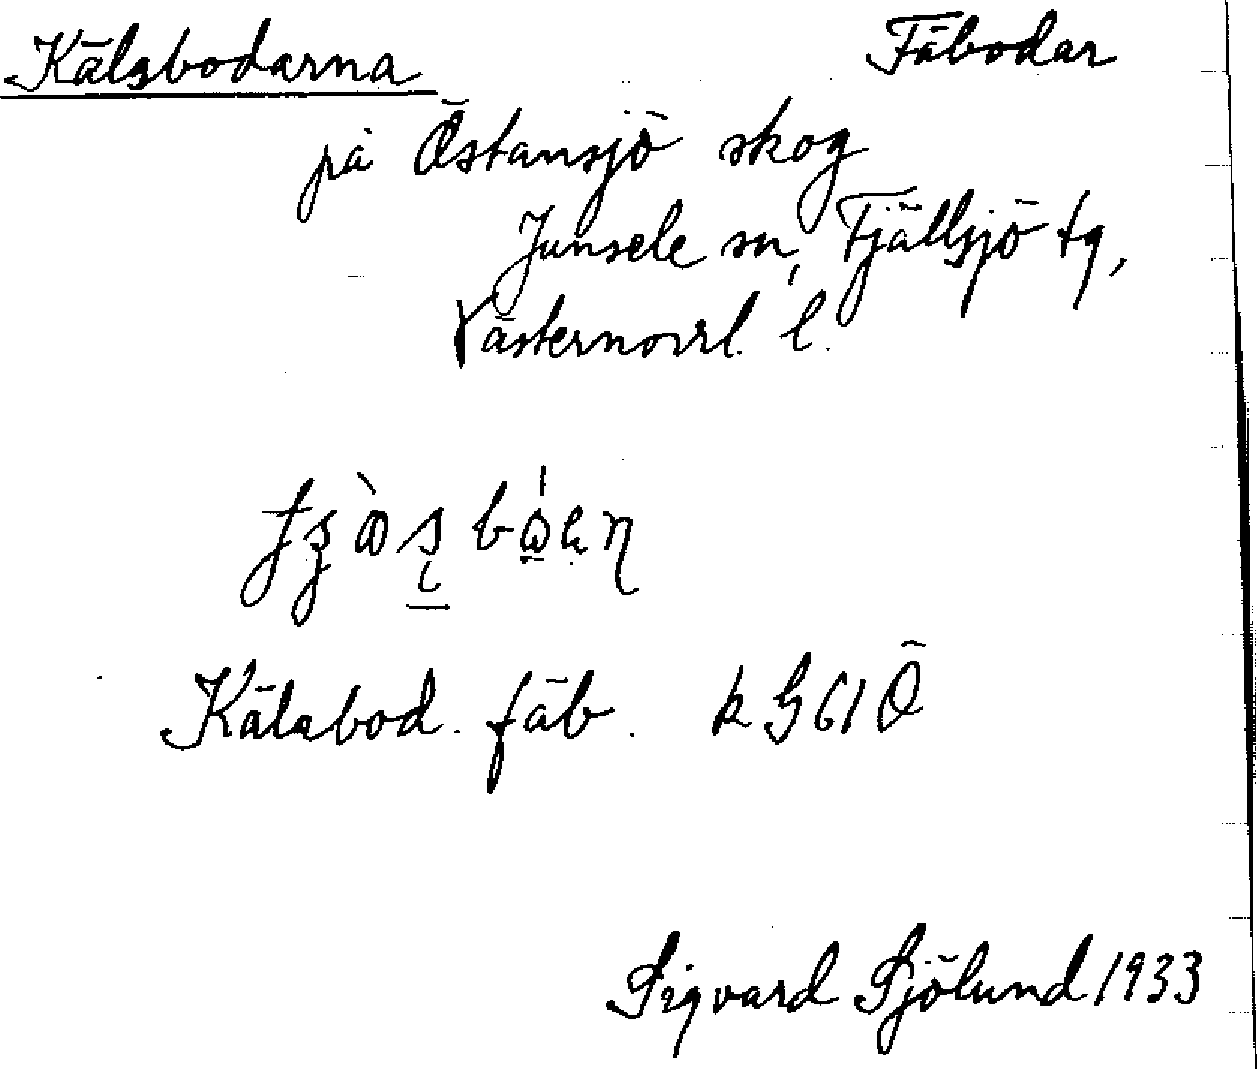 Kälsbodarna Fäbodar
på Östansjö skog
Junsele sn, Fjällsjö tg,
Västernorrl. l.
Kälsbod. fäb. k G 61 Ö
Sigvard Sjölund 1933